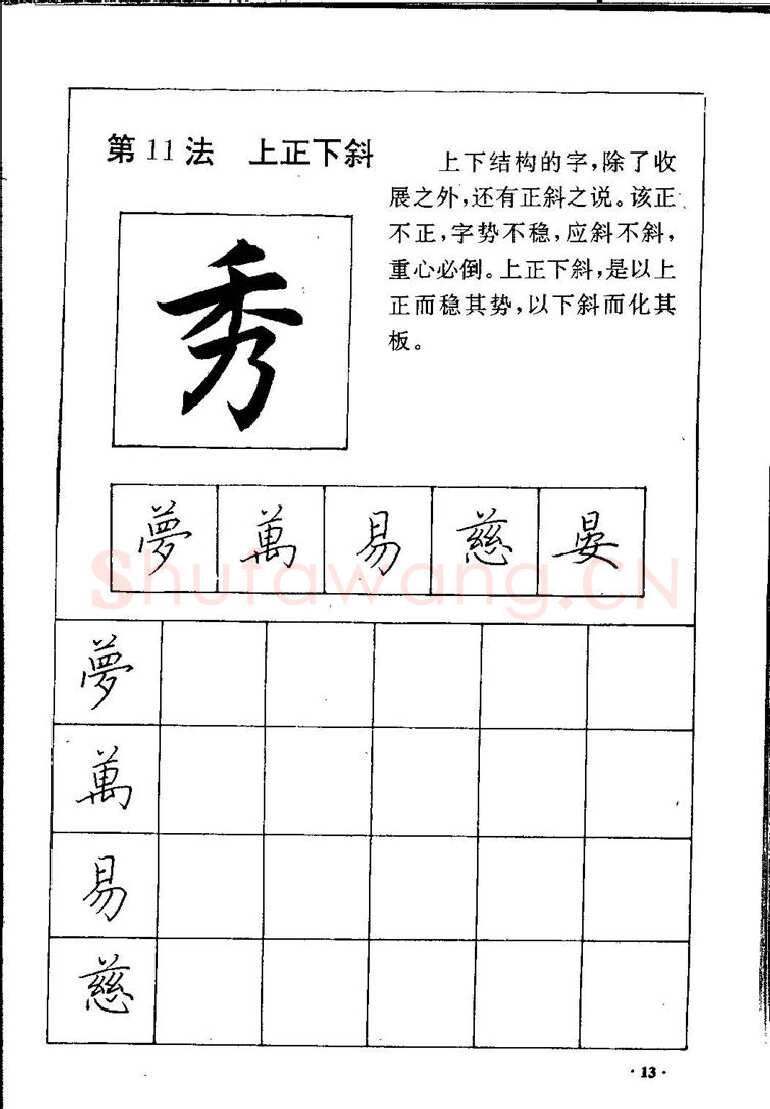 第11法 上正下斜
上下结构的字,除了收
展之外,还有正斜之说。该正
不正,字势不稳,应斜不斜,
重心必倒。上正下斜,是以上
正而稳其势,以下斜而化其
板。
秀
夢 萬 易 慈 晏
Shufawang.CN
夢
萬
易
慈
·13·